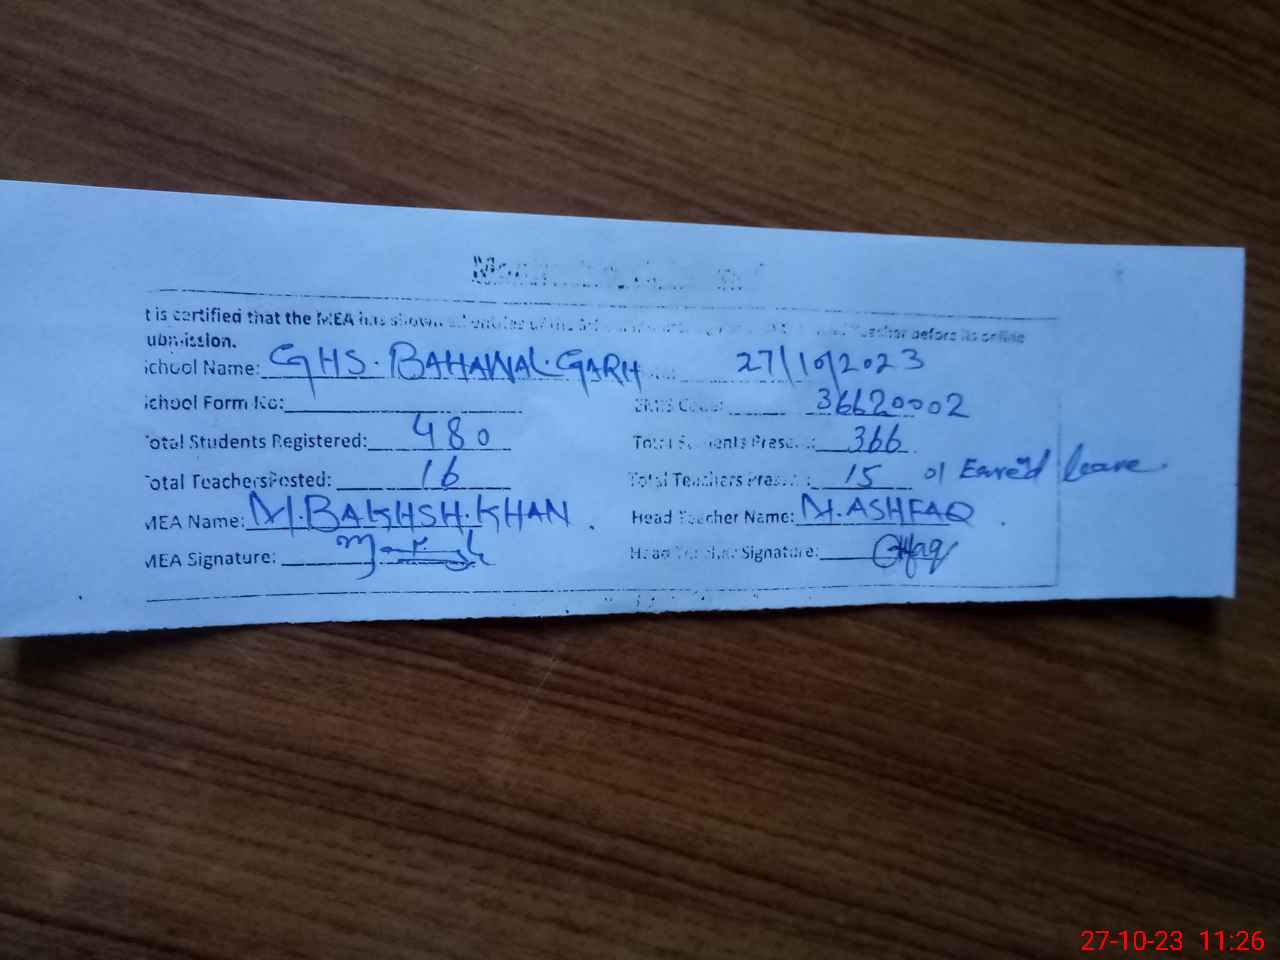 t is certified that the MEA has shown all entries of the before its online
ubmission.
chool Name: GHS. BAHAWAL. GARH 27/10/2023
chool Form No: 36620002
otal Students Registered: 480 Total Students Present: 366
otal Teachers Posted: 16 Total Teachers Present: 15 01 Earned leave
MEA Name: M. BAKHSH. KHAN Head Teacher Name: M. ASHFAQ
MEA Signature: Head Teacher Signature:
27-10-23 11:26